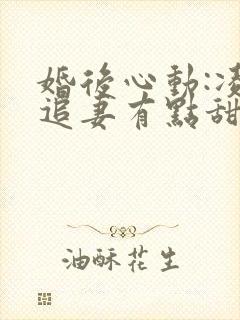 婚後心動:凌
追妻有點甜
油酥花生